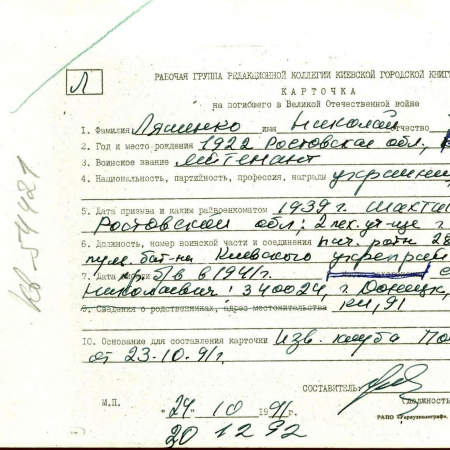 Л
РАБОЧАЯ ГРУППА РЕДАКЦИОННОЙ КОЛЛЕГИИ КИЕВСКОЙ ГОРОДСКОЙ КНИГ
КАРТОЧКА
на погибшего в Великой Отечественной войне
1. Фамилия Ляшенко имя Николай отчество
2. Год и место рождения 1922 Ростовская обл.,
3. Воинское звание лейтенант
4. Национальность, партийность, профессия, награды украинец
5. Дата призыва и каким райвоенкоматом 1939 г. Шахтин
Ростовской обл; 2 пех. уч-ще г.
6. Должность, номер воинской части и соединения нач. 28
пул. бат-на Киевского укрепрай
7. Дата б/в в 1941г.
Николаевич: 340024, г. Донецк,
9. Сведения о родственниках, адрес местожительства кв, 91
10. Основание для составления карточки Изв. клуба По
от 23.10.91г.
СОСТАВИТЕЛЬ:
(должность
М.П.
"24" 10 1991г.
20 12 92
КВ-54421